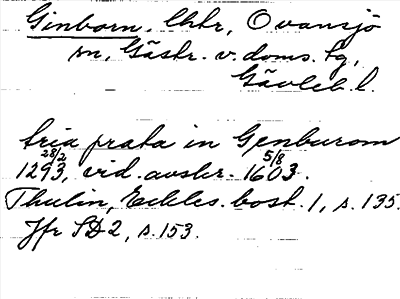 Ginborn, Chtr, Ovansjö
sn, Gästr. v. doms. tg,
Gävleb. l.
tria prata in Genburom
28/2 1293, vid. avskr. 5/8 1603.
Thulin, Eckles. bost. 1, s. 135.
Jfr SD 2, s. 153.